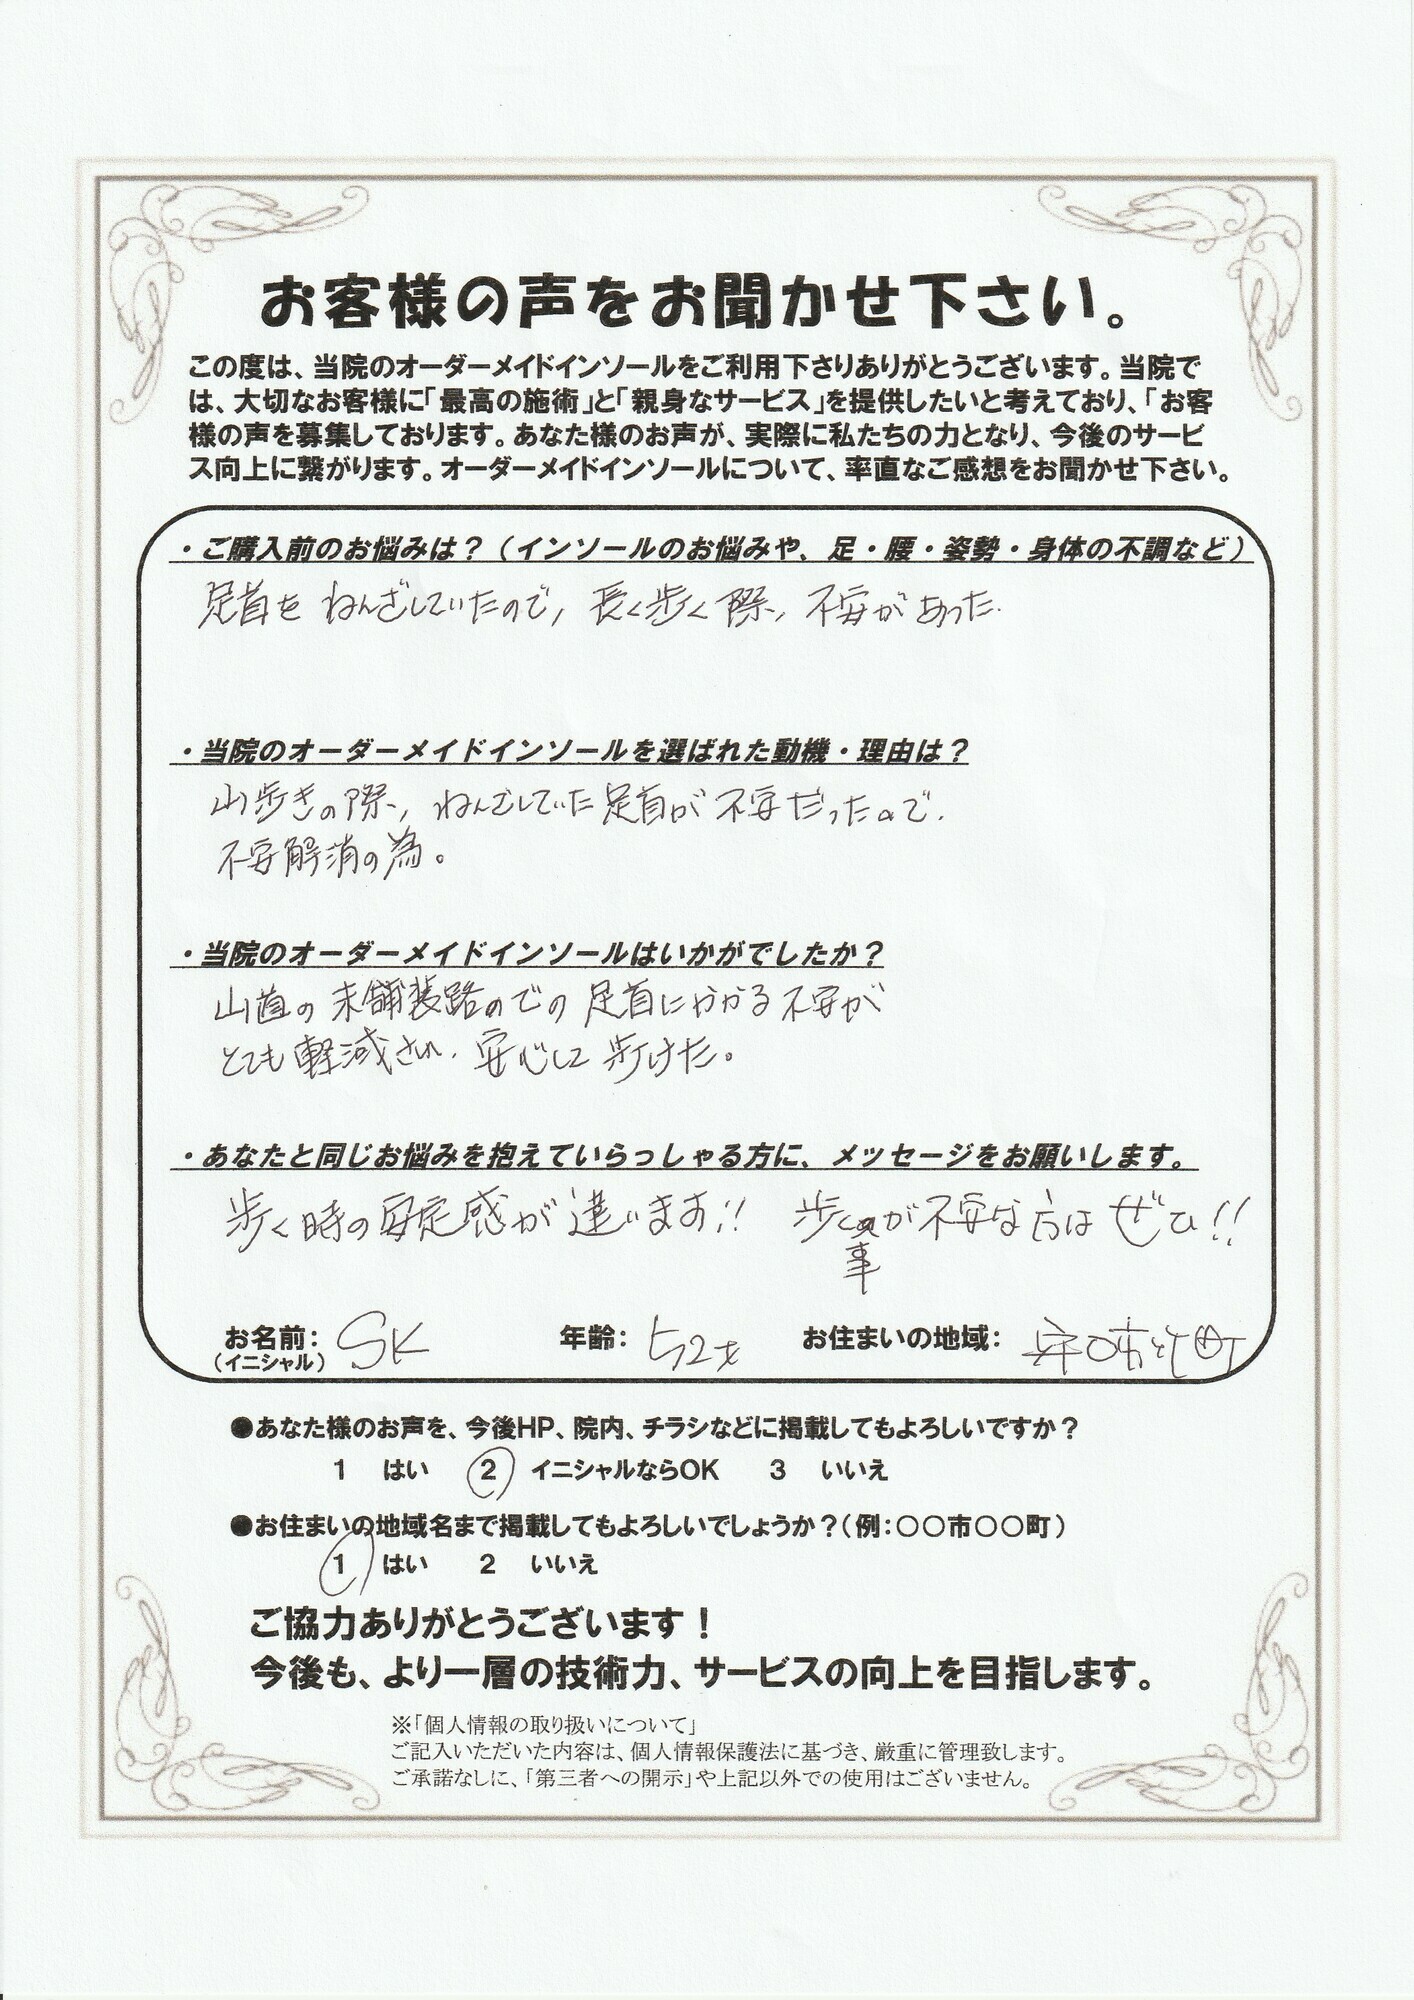 お客様の声をお聞かせ下さい。
この度は、当院のオーダーメイドインソールをご利用下さりありがとうございます。当院で
は、大切なお客様に「最高の施術」と「親身なサービス」を提供したいと考えており、「お客
様の声を募集しております。あなた様のお声が、実際に私たちの力となり、今後のサービ
ス向上に繋がります。オーダーメイドインソールについて、率直なご感想をお聞かせ下さい。
・ご購入前のお悩みは？（インソールのお悩みや、足・腰・姿勢・身体の不調など）
足首をねんざしていたので、長く歩く際、不安があった.
・当院のオーダーメイドインソールを選ばれた動機・理由は？
山歩きの際、ねんざしていた足首が不安だったので、
不安解消の為。
・当院のオーダーメイドインソールはいかがでしたか？
山道の未舗装路のでの足首にかかる不安が
とても軽減され、安心して歩けた。
・あなたと同じお悩みを抱えていらっしゃる方に、メッセージをお願いします。
歩く時の安定感が違います!! 歩く事が不安な方はぜひ!!
お名前：SK 年齢：52才 お住まいの地域：市町
（イニシャル）
●あなた様のお声を、今後HP、院内、チラシなどに掲載してもよろしいですか？
1 はい 2 イニシャルならOK 3 いいえ
●お住まいの地域名まで掲載してもよろしいでしょうか？（例：〇〇市〇〇町）
1 はい 2 いいえ
ご協力ありがとうございます！
今後も、より一層の技術力、サービスの向上を目指します。
※「個人情報の取り扱いについて」
ご記入いただいた内容は、個人情報保護法に基づき、厳重に管理致します。
ご承諾なしに、「第三者への開示」や上記以外での使用はございません。